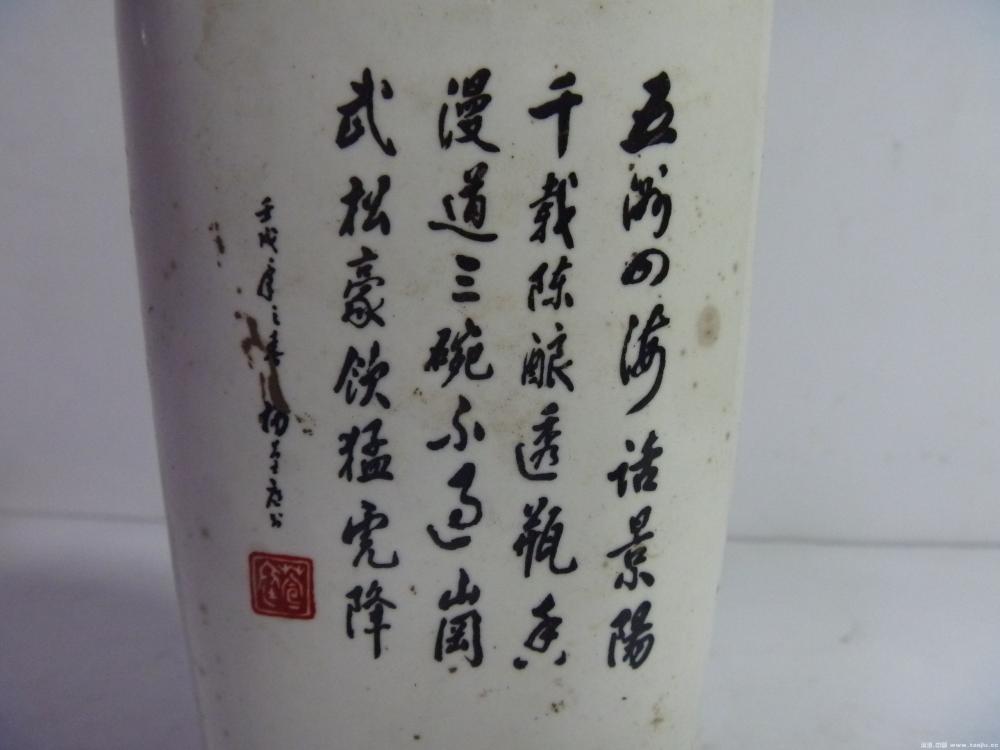 五洲四海话景陽
千载陈酿透瓶香
漫道三碗不过崗
武松豪饮猛虎降
壬戌年之春 杨
www.teeju.cn